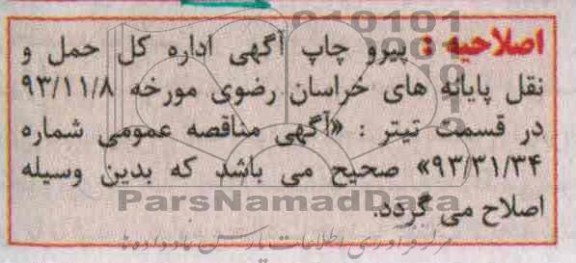 اصلاحیه : پیرو چاپ آگهی اداره کل حمل و
نقل پایانه های خراسان رضوی مورخه ۹۳/۱۱/۸
در قسمت تیتر : «آگهی مناقصه عمومی شماره
۹۳/۳۱/۳۴» صحیح می باشد که بدین وسیله
اصلاح می گردد.
ParsNamadData